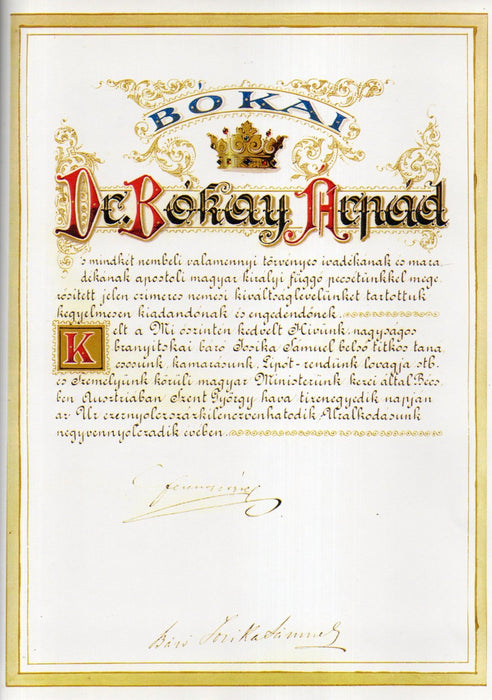 BÓKAI
Dr. Bókay Árpád
's mindkét nembeli valamennyi törvényes ivadékának és mara
dékának apostoli magyar királyi függő pecsétünkkel mege
rősitett jelen czimeres nemesi kiváltságlevelünket tartottuk
kegyelmesen kiadandónak és engedendőnek.
Kelt a Mi őszintén kedvelt Hivünk: nagyságos
branyitskai báró Josika Sámuel belső titkos taná
csosunk, kamarásunk, Lipót-rendünk lovagja stb.
és Személyünk körüli magyar Ministerünk kezei által Bécs
ben Austriában Szent György hava tizenegyedik napján
az Úr ezernyolczszázkilenczvenhatodik Uralkodásunk
negyvennyolczadik évében.
Ferencz József
Báró Josika Sámuel